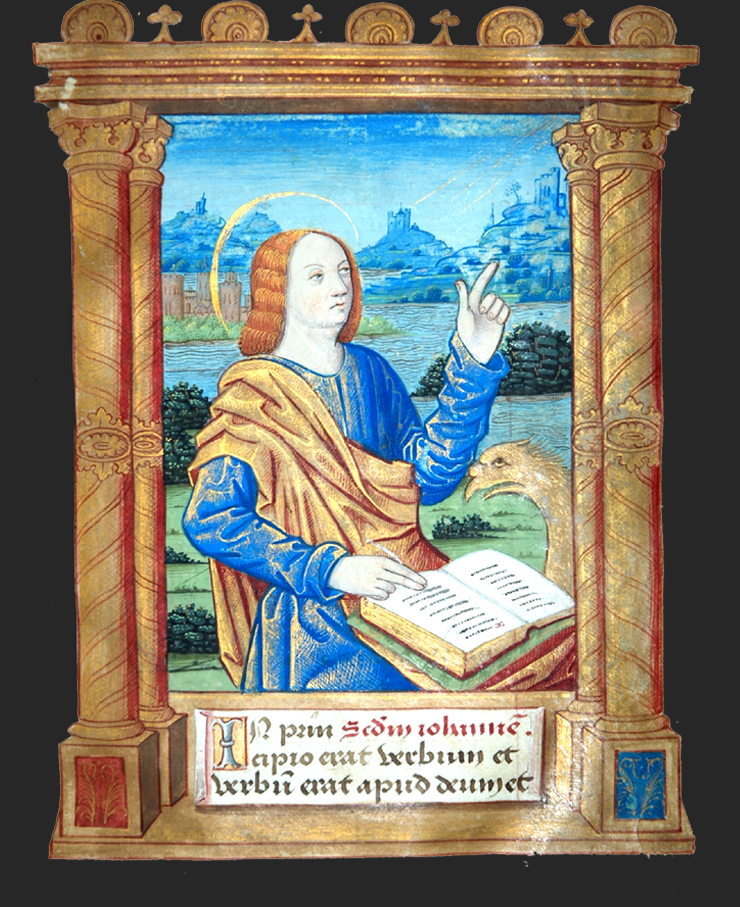 IN prin Scdm iohannē.
cipio erat verbum et
verbū erat apud deum et